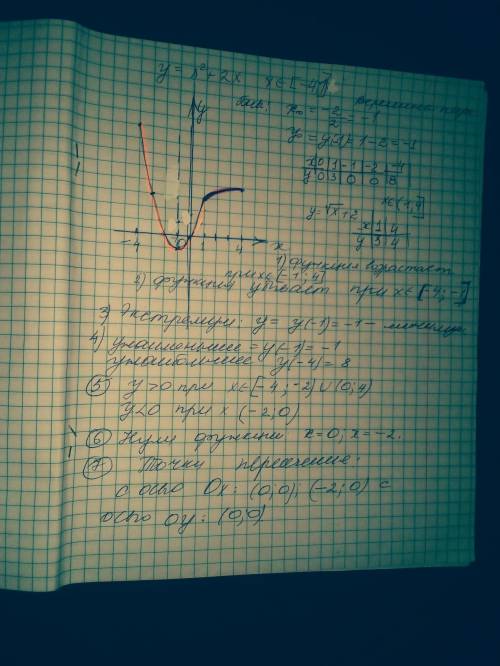 y = x² + 2x x ∈ [-4; 1]
вершина пар.
x₀ = -2/2 = -1
y₀ = y(-1) = 1 - 2 = -1
x 0 1 -1 -2 -4
y 0 3 0 0 8
x ∈ (1; 4]
y = √x + 2
x 1 4
y 3 4
y
-4 0 1 4 x
1) функция возрастает
при x ∈ [-1; 4]
2) функция убывает при x ∈ [-4; -1]
3) Экстремум: y = y(-1) = -1 - минимум
4) унаименьшее = y(-1) = -1
унаибольшее y(-4) = 8
5 y > 0 при x ∈ [-4; -2) ∪ (0; 4)
y < 0 при x (-2; 0)
6 Нули функции x = 0; x = -2.
7 Точки пересечения:
с осью Ox: (0; 0); (-2; 0) с
осью Oy: (0; 0)